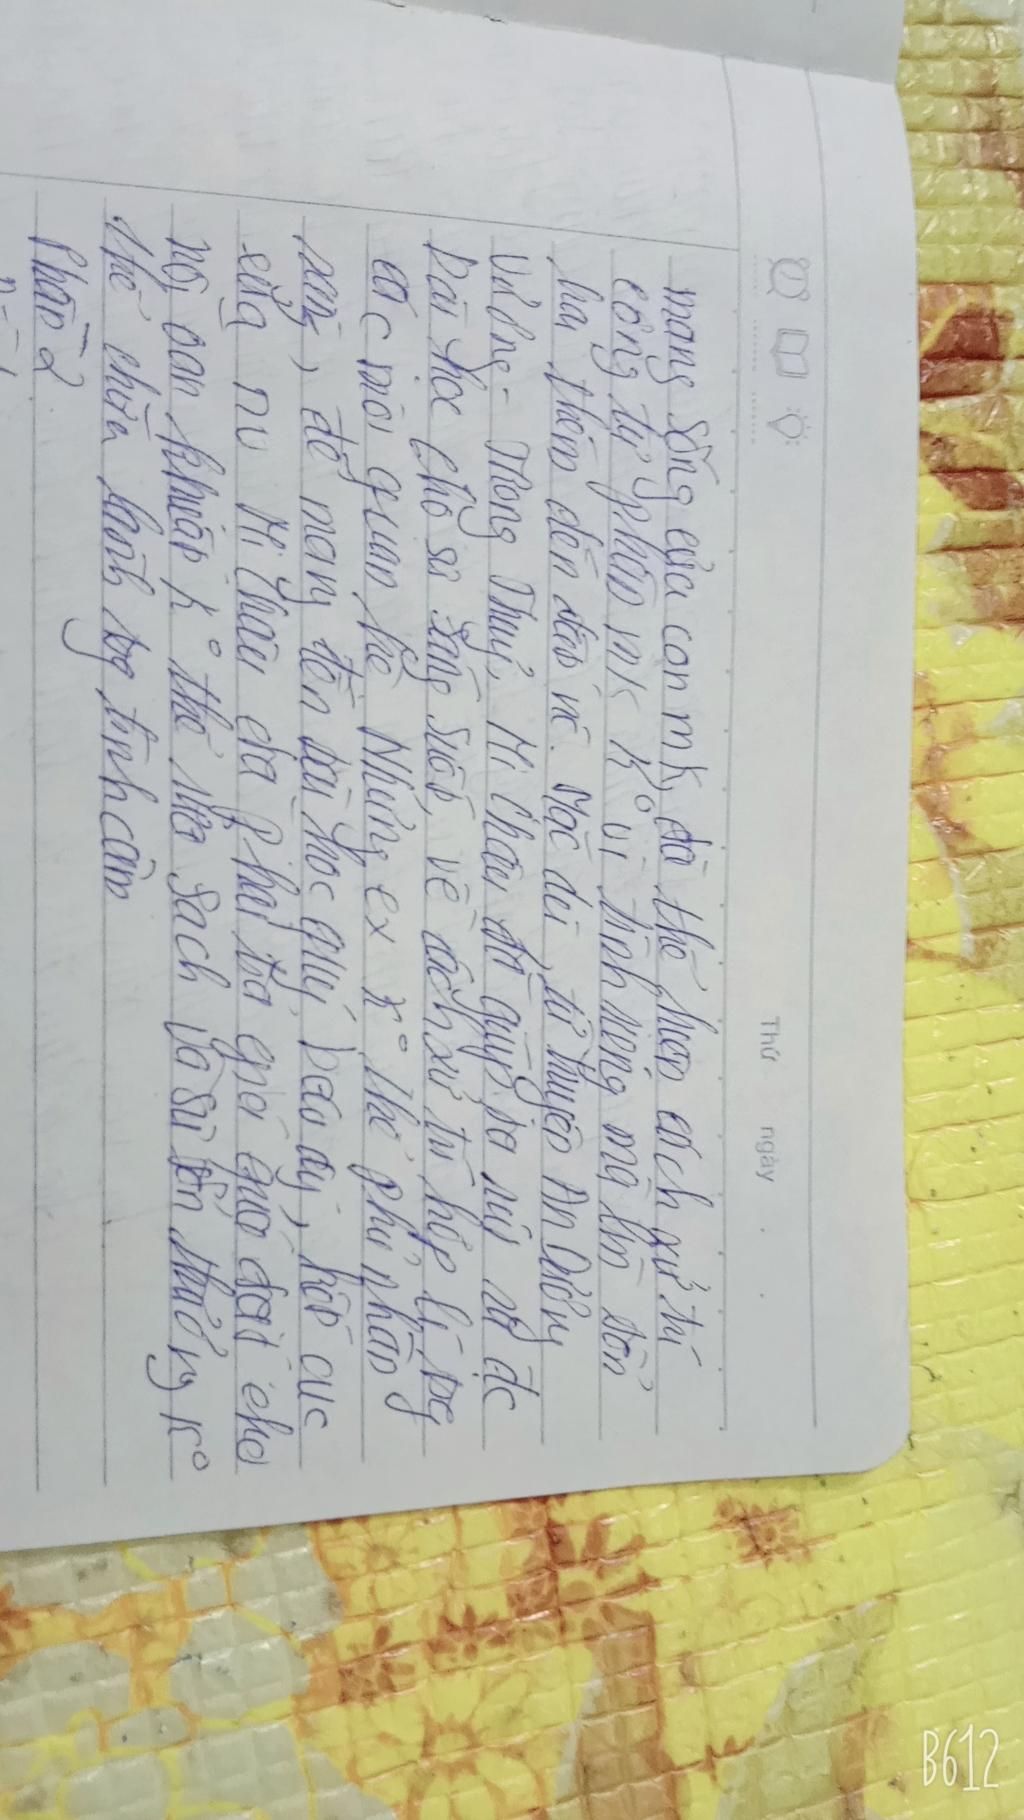 Thứ ngày . .
mạng sống của con mk, đã thể hiện cách xử tú
công tư phân mk k° vì tình riêng mà làm tổn
hại thêm đến dân nc. Mặc dù, từ truyện An Dương
Vương - Trọng Thuỷ, Mị Châu đã giúp ta rút ra đc
bài học cho sự sáng suốt, về cách xử tú hợp lí trg
các mối quan hệ. Những ex k° thể phủ nhận
rằng, để mang đến bài học quý báu ấy, kết cục
của nv Mị Châu đã phải trả giá quá đắt cho
nỗi oan khuất k° thể rửa sạch và sự tổn thương k°
thể chữa lành trg tình cảm
Phần 2